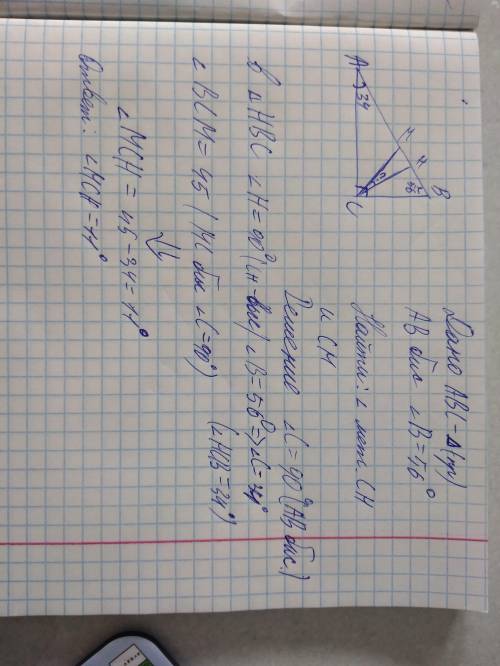 Дано ABC - Δ (пр)
AB бис ∠B = 56°
Найти: ∠ меж. CH
и CM
Решение ∠C = 90° (AB бис.)
В Δ HBC ∠H = 90° (CH - выс) ∠B = 56° => ∠C = 34°
(∠HCB = 34°)
∠BCM = 45 (MC бис ∠C = 90°)
∠MCH = 45 - 34 = 11°
Ответ: ∠MCH = 11°
A
34
B
56
C